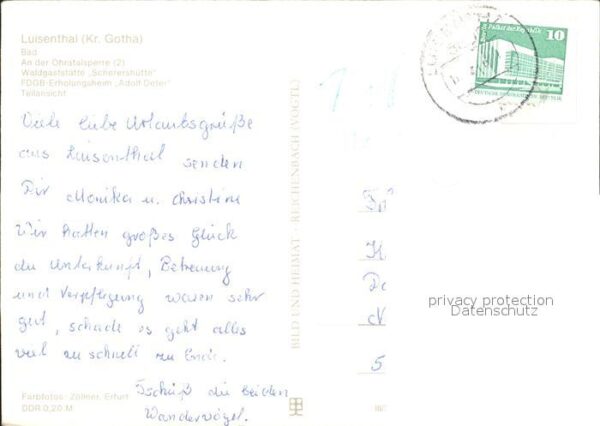 Luisenthal (Kr. Gotha)
Bad
An der Ohratalsperre (2)
Waldgaststätte „Scherershütte"
FDGB-Erholungsheim „Adolf Deter"
Teilansicht
Viele liebe Urlaubsgrüße
aus Luisenthal senden
Dir Monika u. Christine
Wir hatten großes Glück
die Unterkunft, Betreuung
und Verpflegung waren sehr
gut, schade es geht alles
viel zu schnell zu Ende.
Tschüß die beiden
Wandervögel.
Farbfotos: Zöllner, Erfurt
DDR 0,20 M
BILD UND HEIMAT · REICHENBACH (VOGTL)
Palast der Republik
10
DEUTSCHE DEMOKRATISCHE REPUBLIK
privacy protection
Datenschutz
5